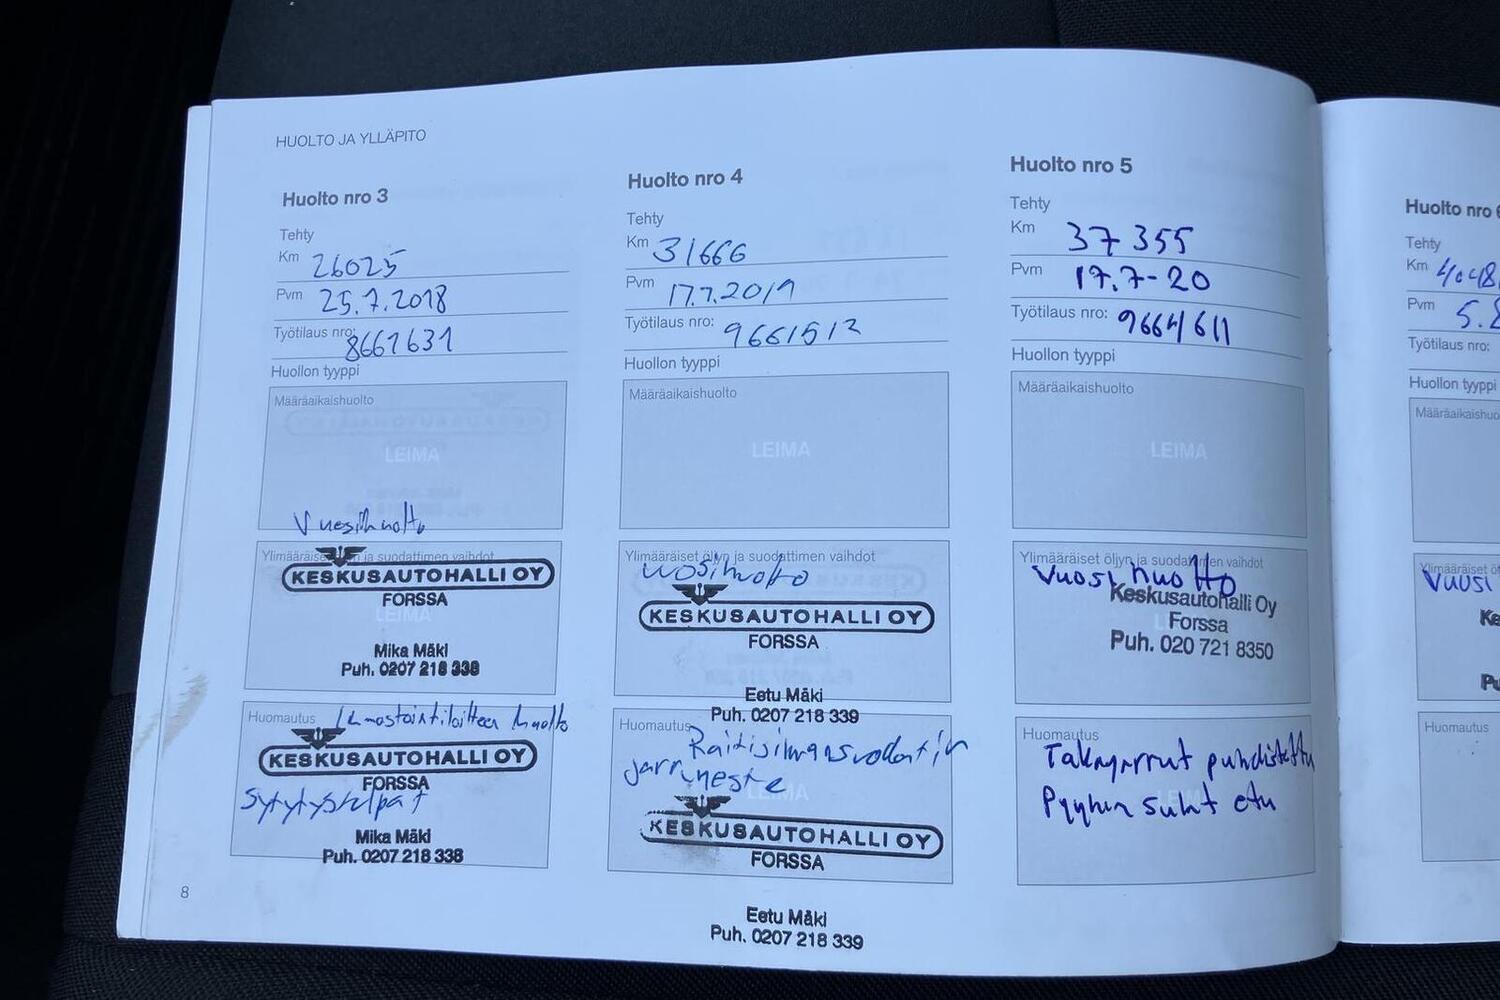 HUOLTO JA YLLÄPITO
Huolto nro 3
Tehty
Km 26025
Pvm 25.7.2018
Työtilaus nro: 8661631
Huollon tyyppi
Määräaikaishuolto
LEIMA
Vuosihuolto
Ylimääräiset ja suodattimen vaihdot
KESKUSAUTOHALLI OY
FORSSA
LEIMA
Mika Mäki
Puh. 0207 218 338
Huomautus Ilmastointilaitteen huolto
KESKUSAUTOHALLI OY
FORSSA
Sytytystulpat
Mika Mäki
Puh. 0207 218 338
8
Huolto nro 4
Tehty
Km 31666
Pvm 17.7.2019
Työtilaus nro: 9661512
Huollon tyyppi
Määräaikaishuolto
LEIMA
Ylimääräiset öljyn ja suodattimen vaihdot
vuosihuolto
KESKUSAUTOHALLI OY
FORSSA
Eetu Mäki
Puh. 0207 218 339
Huomautus Raitisilmansuodatin
jarruneste
LEIMA
KESKUSAUTOHALLI OY
FORSSA
Eetu Mäki
Puh. 0207 218 339
Huolto nro 5
Tehty
Km 37 355
Pvm 17.7-20
Työtilaus nro: 9664611
Huollon tyyppi
Määräaikaishuolto
LEIMA
Ylimääräiset öljyn ja suodattimen vaihdot
Vuosihuolto
Keskusautohalli Oy
Forssa
Puh. 020 721 8350
Huomautus
Takajarrut puhdistettu
Pyyhin sulat etu
Huolto nro 6
Tehty
Km 4048
Pvm 5.
Työtilaus nro:
Huollon tyyppi
Määräaikaishuo
Ylimääräiset ö
Vuosi
Ke
Pu
Huomautus